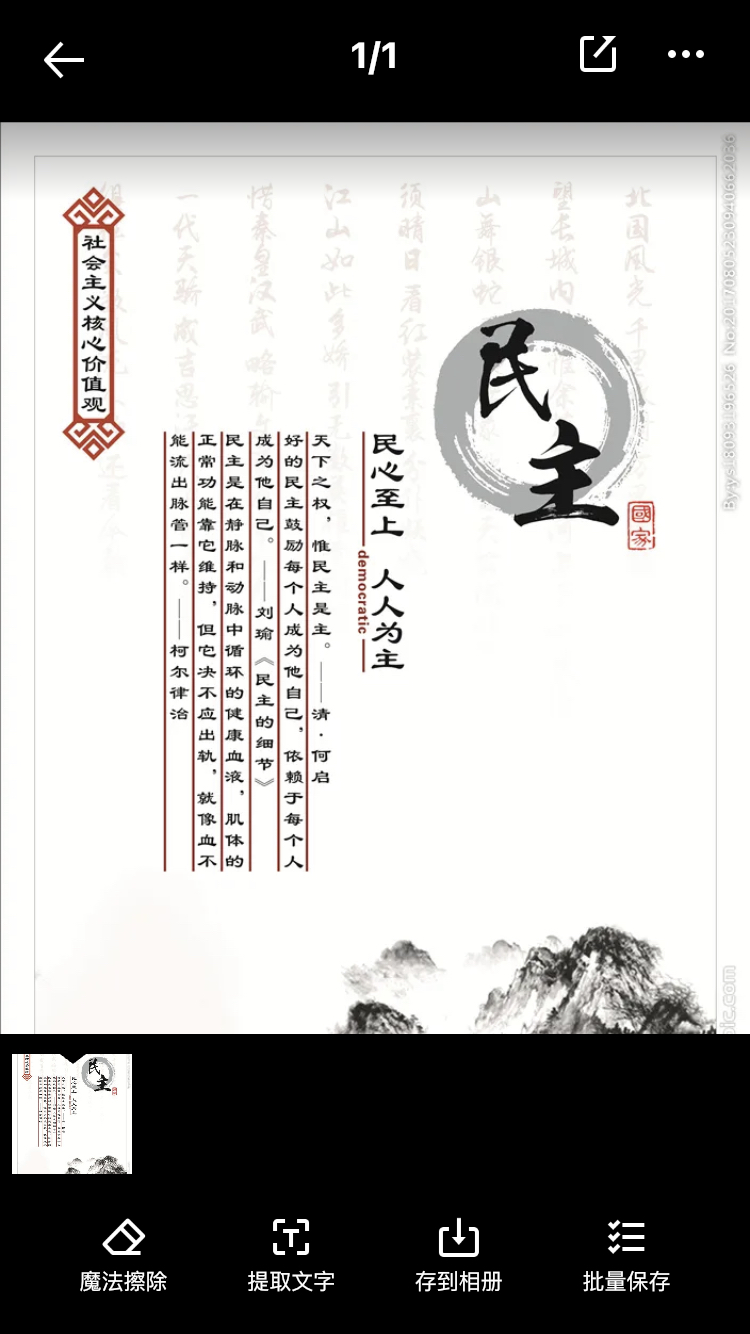 1/1
北国风光 千里
望长城内 惟余
山舞银蛇
须晴日 看红装素裹 分外
江山如此多娇 引无数
惜秦皇汉武 略输
一代天骄 成吉思
还看今朝
民主
國家
民心至上 人人为主
democratic
天下之权，惟民主是主。——清·何启
好的民主鼓励每个人成为他自己，依赖于每个人
成为他自己。——刘瑜《民主的细节》
民主是在静脉和动脉中循环的健康血液，肌体的
正常功能靠它维持，但它决不应出轨，就像血不
能流出脉管一样。——柯尔律治
社会主义核心价值观
魔法擦除
提取文字
存到相册
批量保存